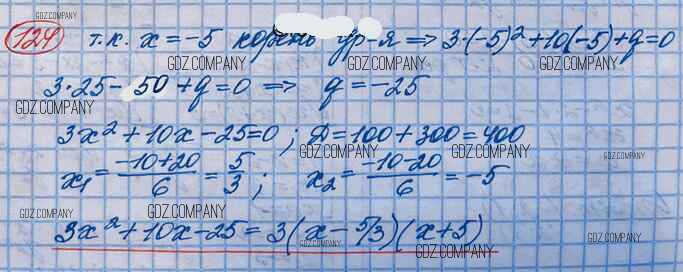 GDZ.COMPANY
124 т.к. x = -5 корень ур-я ⇒ 3·(-5)² + 10(-5) + q = 0
GDZ.COMPANY GDZ.COMPANY GDZ.COMPANY
3·25 - 50 + q = 0 ⇒ q = -25
GDZ.COMPANY
3x² + 10x - 25 = 0 ; D = 100 + 300 = 400
GDZ.COMPANY GDZ.COMPANY GDZ.COMPANY
x₁ = (-10+20)/6 = 5/3 ; x₂ = (-10-20)/6 = -5
GDZ.COMPANY GDZ.COMPANY
3x² + 10x - 25 = 3(x - 5/3)(x + 5)
GDZ.COMPANY GDZ.COMPANY GDZ.COMPANY